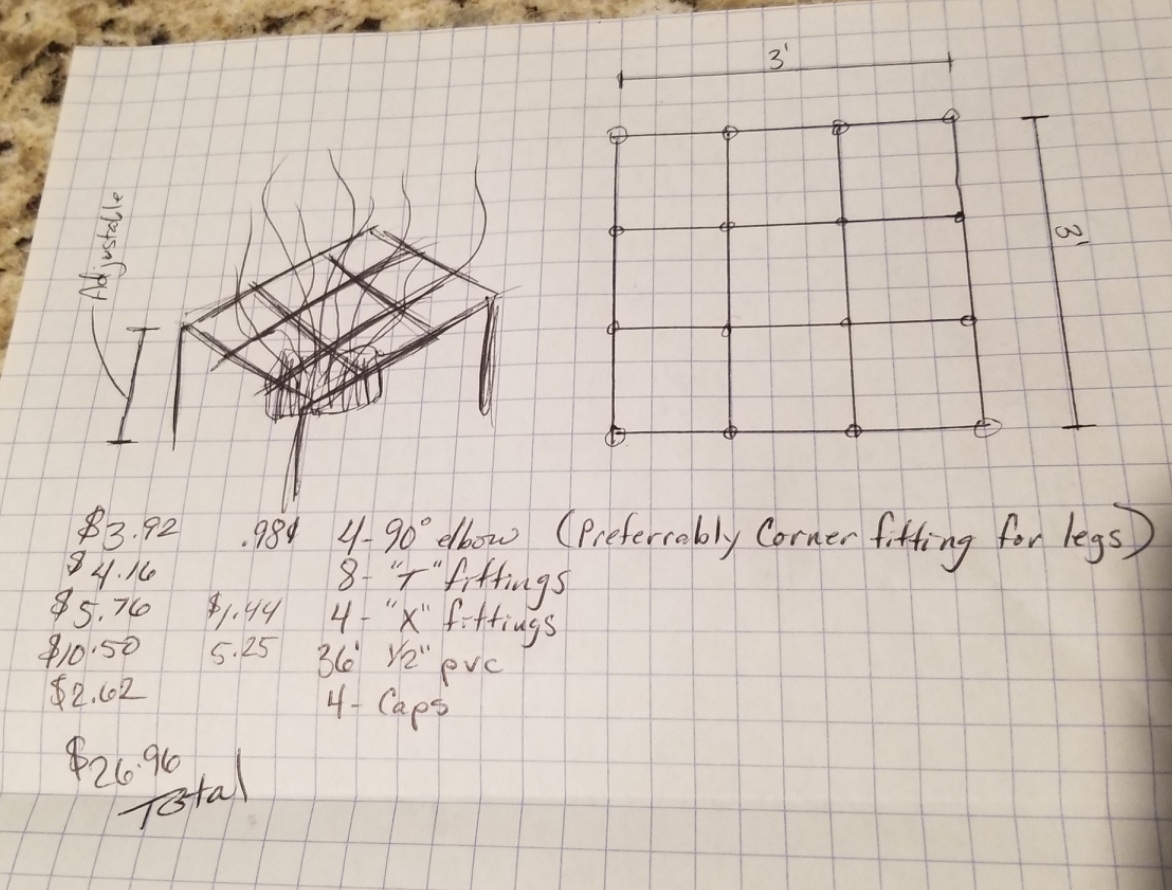 3'
Adjustable
3'
$3.92 .98¢ 4- 90° elbow (Preferrably Corner fitting for legs)
$4.16 8- "T" fittings
$5.76 $1.44 4- "X" fittings
$10.50 5.25 36' 1/2" pvc
$2.62 4- Caps
$26.96
Total